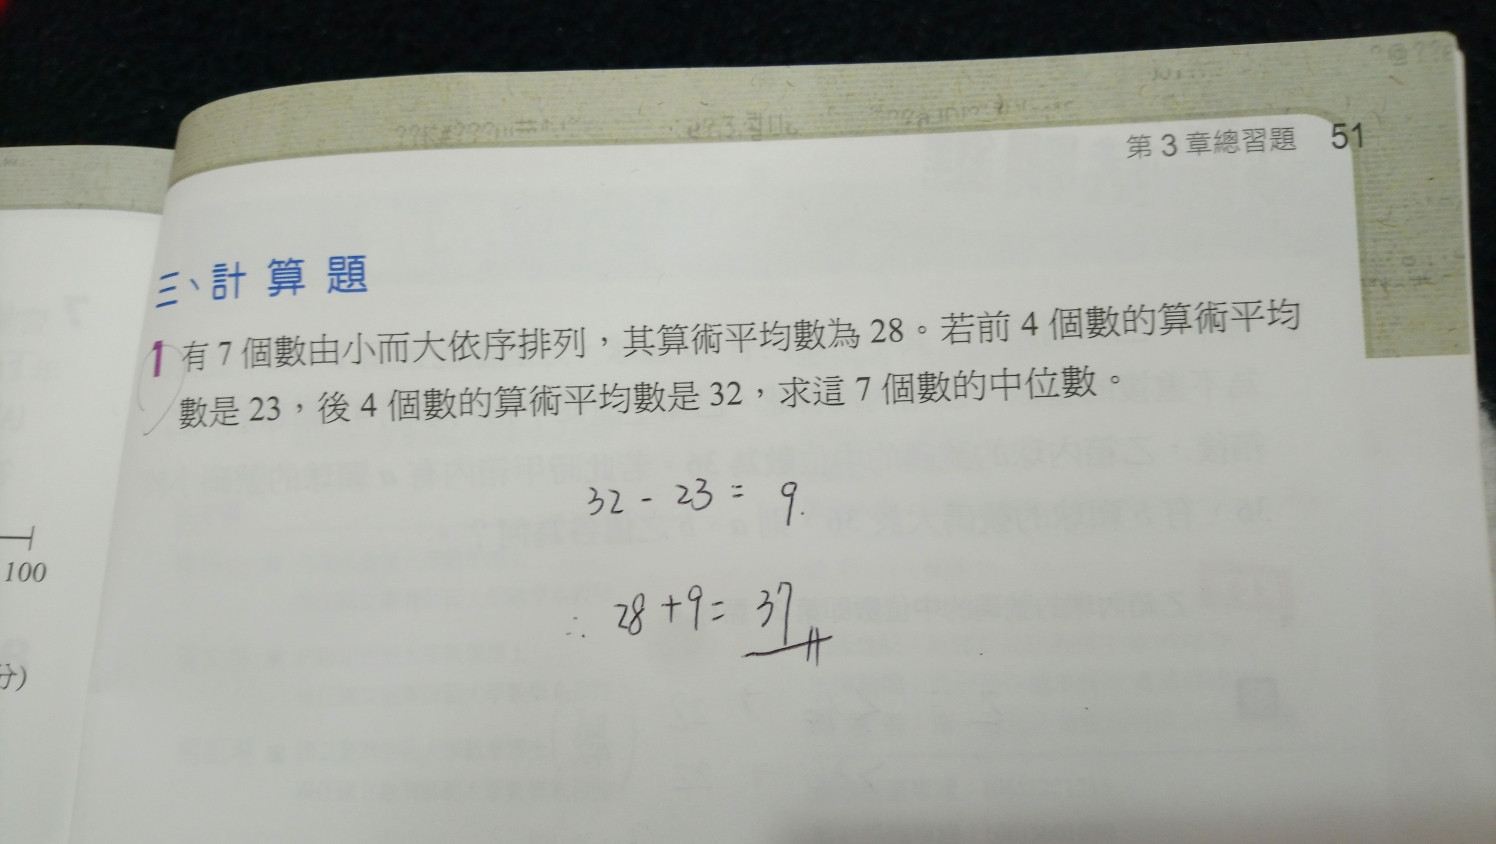 第 3 章總習題 51
三、計算題
1 有 7 個數由小而大依序排列，其算術平均數為 28。若前 4 個數的算術平均
數是 23，後 4 個數的算術平均數是 32，求這 7 個數的中位數。
32 - 23 = 9.
∴ 28 + 9 = 37
100
分)